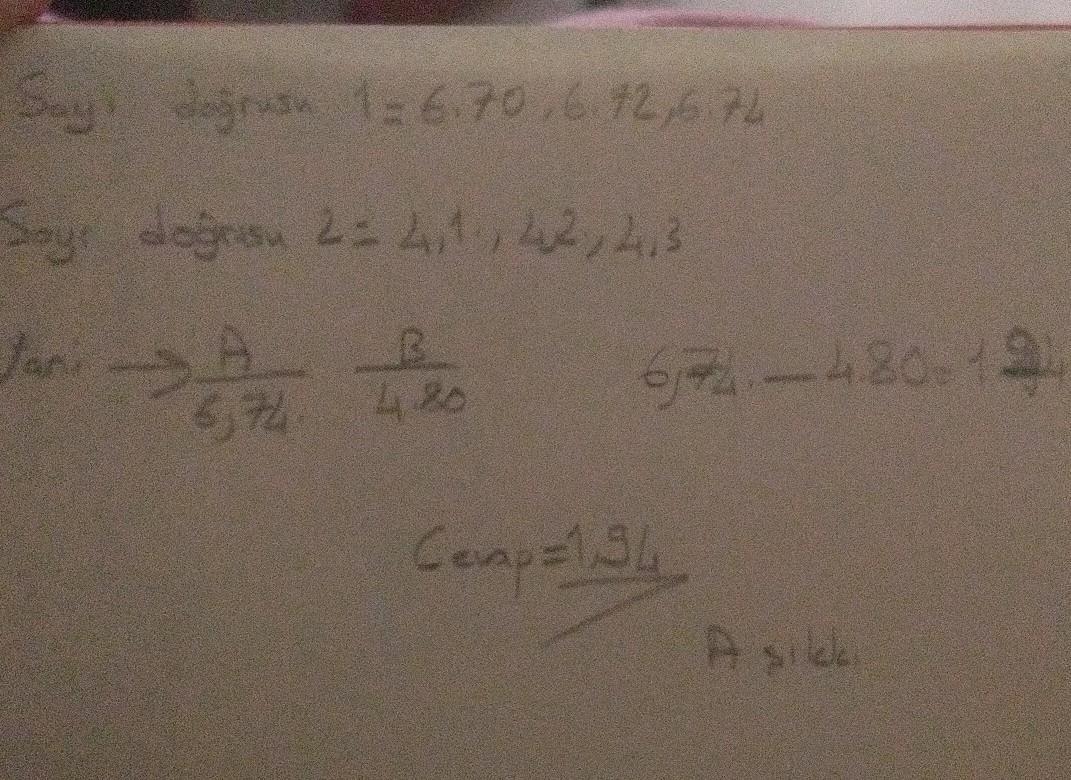 Sayı doğrusu 1 = 6.70, 6.72, 6.74
Sayı doğrusu 2 = 4,1, 4,2, 4,3
Yani → A/6,74 B/4.80 6,74 - 4.80 = 1.94
Cevap = 1,94
A şıkkı